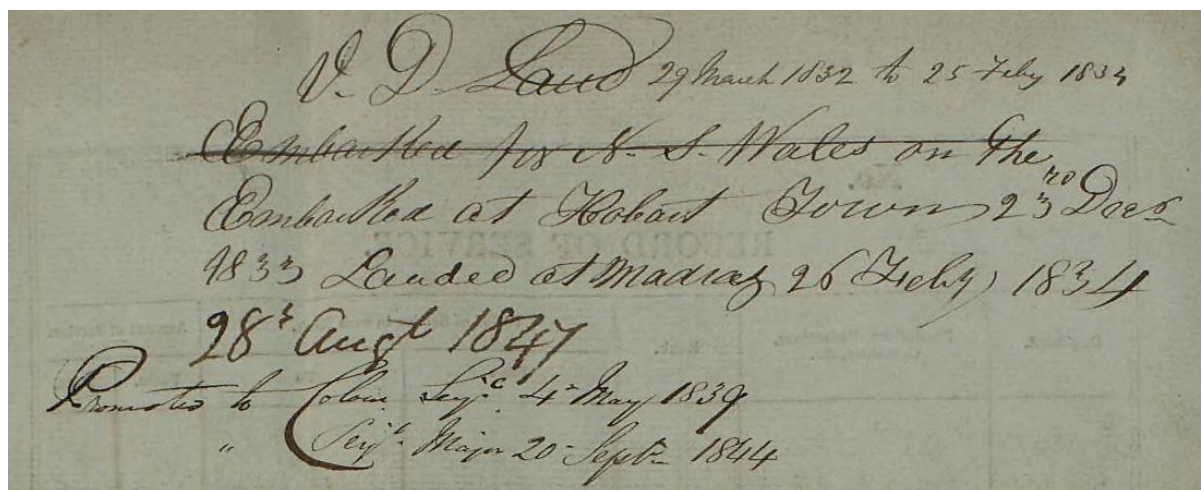 V. D. Land 29 March 1832 to 25 Feby 1834
Embarked for N. S. Wales on the
Embarked at Hobart Town 23rd Decr
1833 Landed at Madras 26 Feby 1834
28th Augt 1847
Promoted to Colour Serjt 4th May 1839
" Serjt Major 20 Septr 1844
RECORD OF SERVICE.
No.
Rank.